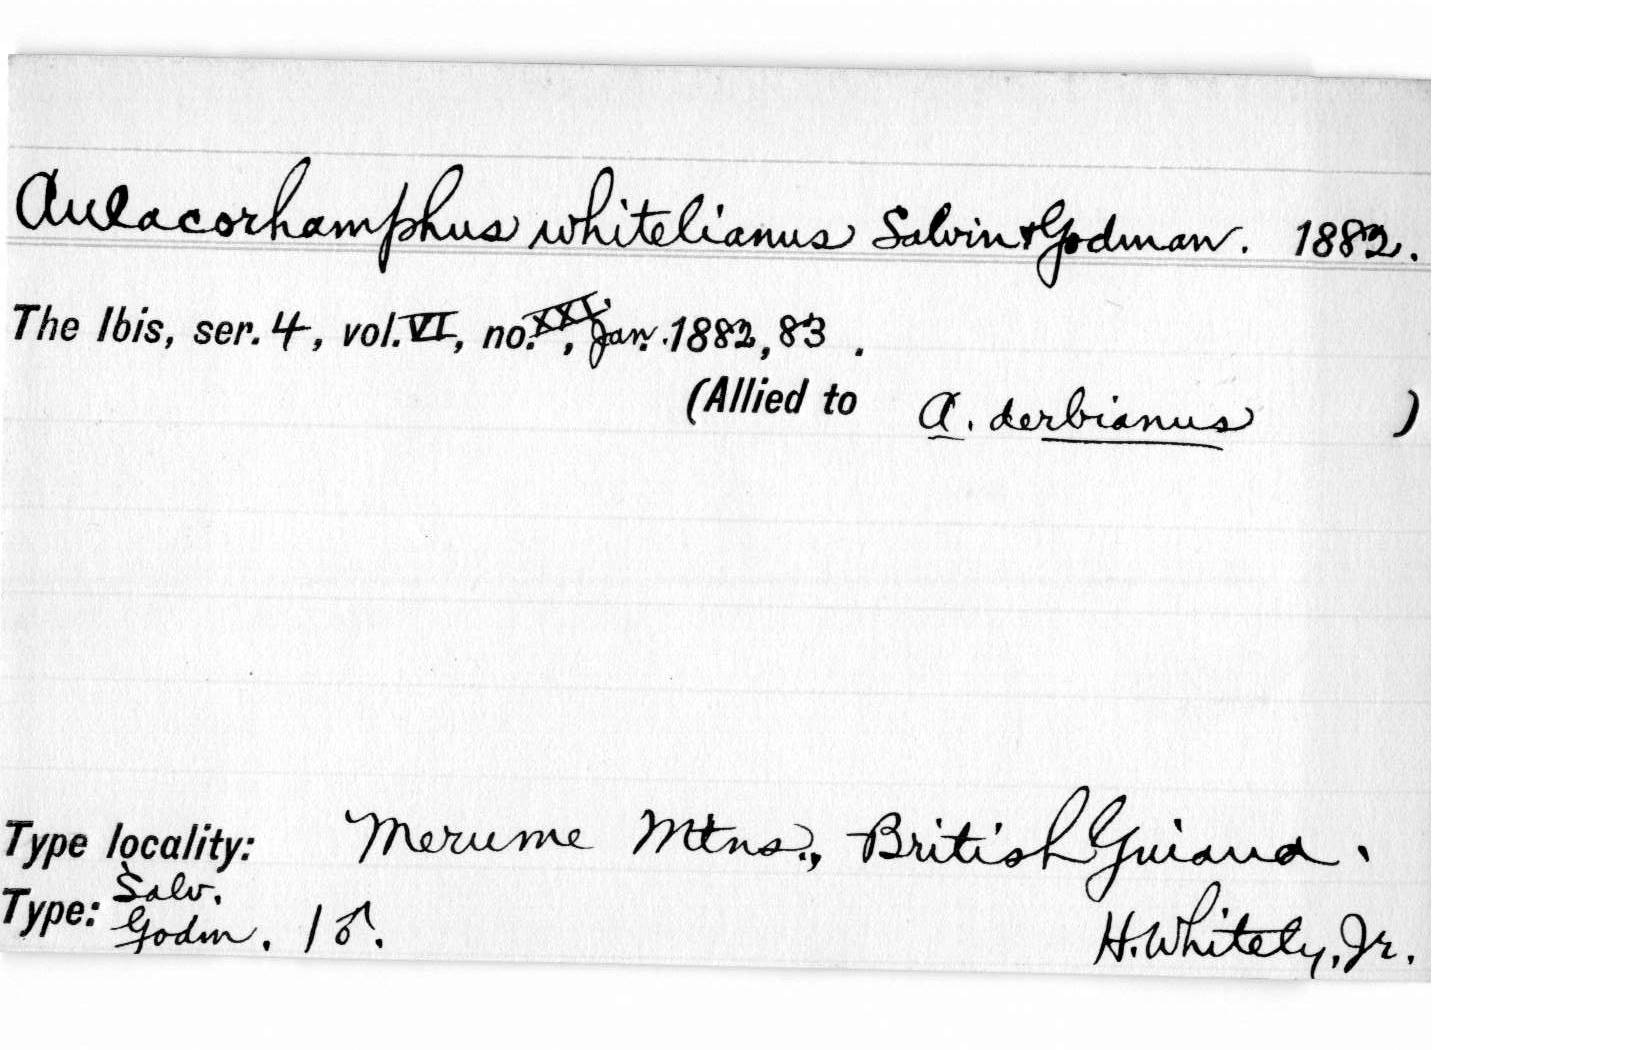 Aulacorhamphus whitelianus Salvin & Godman. 1882.
The Ibis, ser. 4, vol. VI, no. XXI, Jan. 1882, 83 .
(Allied to A. derbianus )
Type locality: Merume Mtns., British Guiana.
Salv.
Type: Godm. 1 ♂. H. Whitely, Jr.